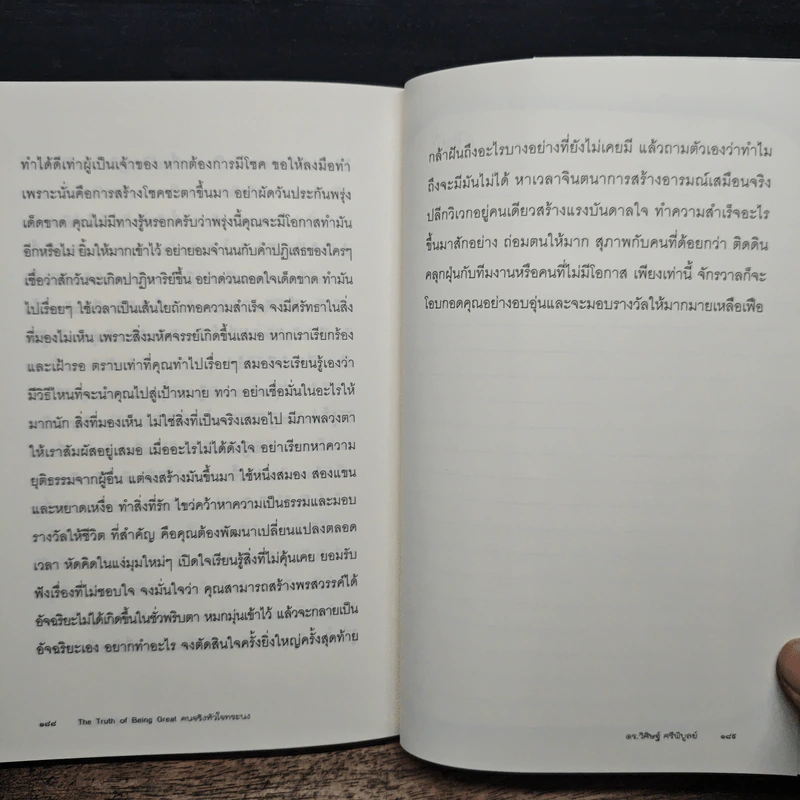 ทำได้ดีเท่าผู้เป็นเจ้าของ หากต้องการมีโชค ขอให้ลงมือทำ
เพราะนั่นคือการสร้างโชคชะตาขึ้นมา อย่าผัดวันประกันพรุ่ง
เด็ดขาด คุณไม่มีทางรู้หรอกครับว่าพรุ่งนี้คุณจะมีโอกาสทำมัน
อีกหรือไม่ ยิ้มให้มากเข้าไว้ อย่ายอมจำนนกับคำปฏิเสธของใครๆ
เชื่อว่าสักวันจะเกิดปาฏิหาริย์ขึ้น อย่าด่วนถอดใจเด็ดขาด ทำมัน
ไปเรื่อยๆ ใช้เวลาเป็นเส้นใยถักทอความสำเร็จ จงมีศรัทธาในสิ่ง
ที่มองไม่เห็น เพราะสิ่งมหัศจรรย์เกิดขึ้นเสมอ หากเราเรียกร้อง
และเฝ้ารอ ตราบเท่าที่คุณทำไปเรื่อยๆ สมองจะเรียนรู้เองว่า
มีวิธีไหนที่จะนำคุณไปสู่เป้าหมาย ทว่า อย่าเชื่อมั่นในอะไรให้
มากนัก สิ่งที่มองเห็น ไม่ใช่สิ่งที่เป็นจริงเสมอไป มีภาพลวงตา
ให้เราสัมผัสอยู่เสมอ เมื่ออะไรไม่ได้ดังใจ อย่าเรียกหาความ
ยุติธรรมจากผู้อื่น แต่จงสร้างมันขึ้นมา ใช้หนึ่งสมอง สองแขน
และหยาดเหงื่อ ทำสิ่งที่รัก ไขว่คว้าหาความเป็นธรรมและมอบ
รางวัลให้ชีวิต ที่สำคัญ คือคุณต้องพัฒนาเปลี่ยนแปลงตลอด
เวลา หัดคิดในแง่มุมใหม่ๆ เปิดใจเรียนรู้สิ่งที่ไม่คุ้นเคย ยอมรับ
ฟังเรื่องที่ไม่ชอบใจ จงมั่นใจว่า คุณสามารถสร้างพรสวรรค์ได้
อัจฉริยะไม่ได้เกิดขึ้นในชั่วพริบตา หมกมุ่นเข้าไว้ แล้วจะกลายเป็น
อัจฉริยะเอง อยากทำอะไร จงตัดสินใจครั้งยิ่งใหญ่ครั้งสุดท้าย
๑๘๘ The Truth of Being Great คนจริงหัวใจทระนง
กล้าฝันถึงอะไรบางอย่างที่ยังไม่เคยมี แล้วถามตัวเองว่าทำไม
ถึงจะมีมันไม่ได้ หาเวลาจินตนาการสร้างอารมณ์เสมือนจริง
ปลีกวิเวกอยู่คนเดียวสร้างแรงบันดาลใจ ทำความสำเร็จอะไร
ขึ้นมาสักอย่าง ถ่อมตนให้มาก สุภาพกับคนที่ด้อยกว่า ติดดิน
คลุกฝุ่นกับทีมงานหรือคนที่ไม่มีโอกาส เพียงเท่านี้ จักรวาลก็จะ
โอบกอดคุณอย่างอบอุ่นและจะมอบรางวัลให้มากมายเหลือเฟือ
ดร.วิศิษฐ์ ศรีพิบูลย์ ๑๘๙